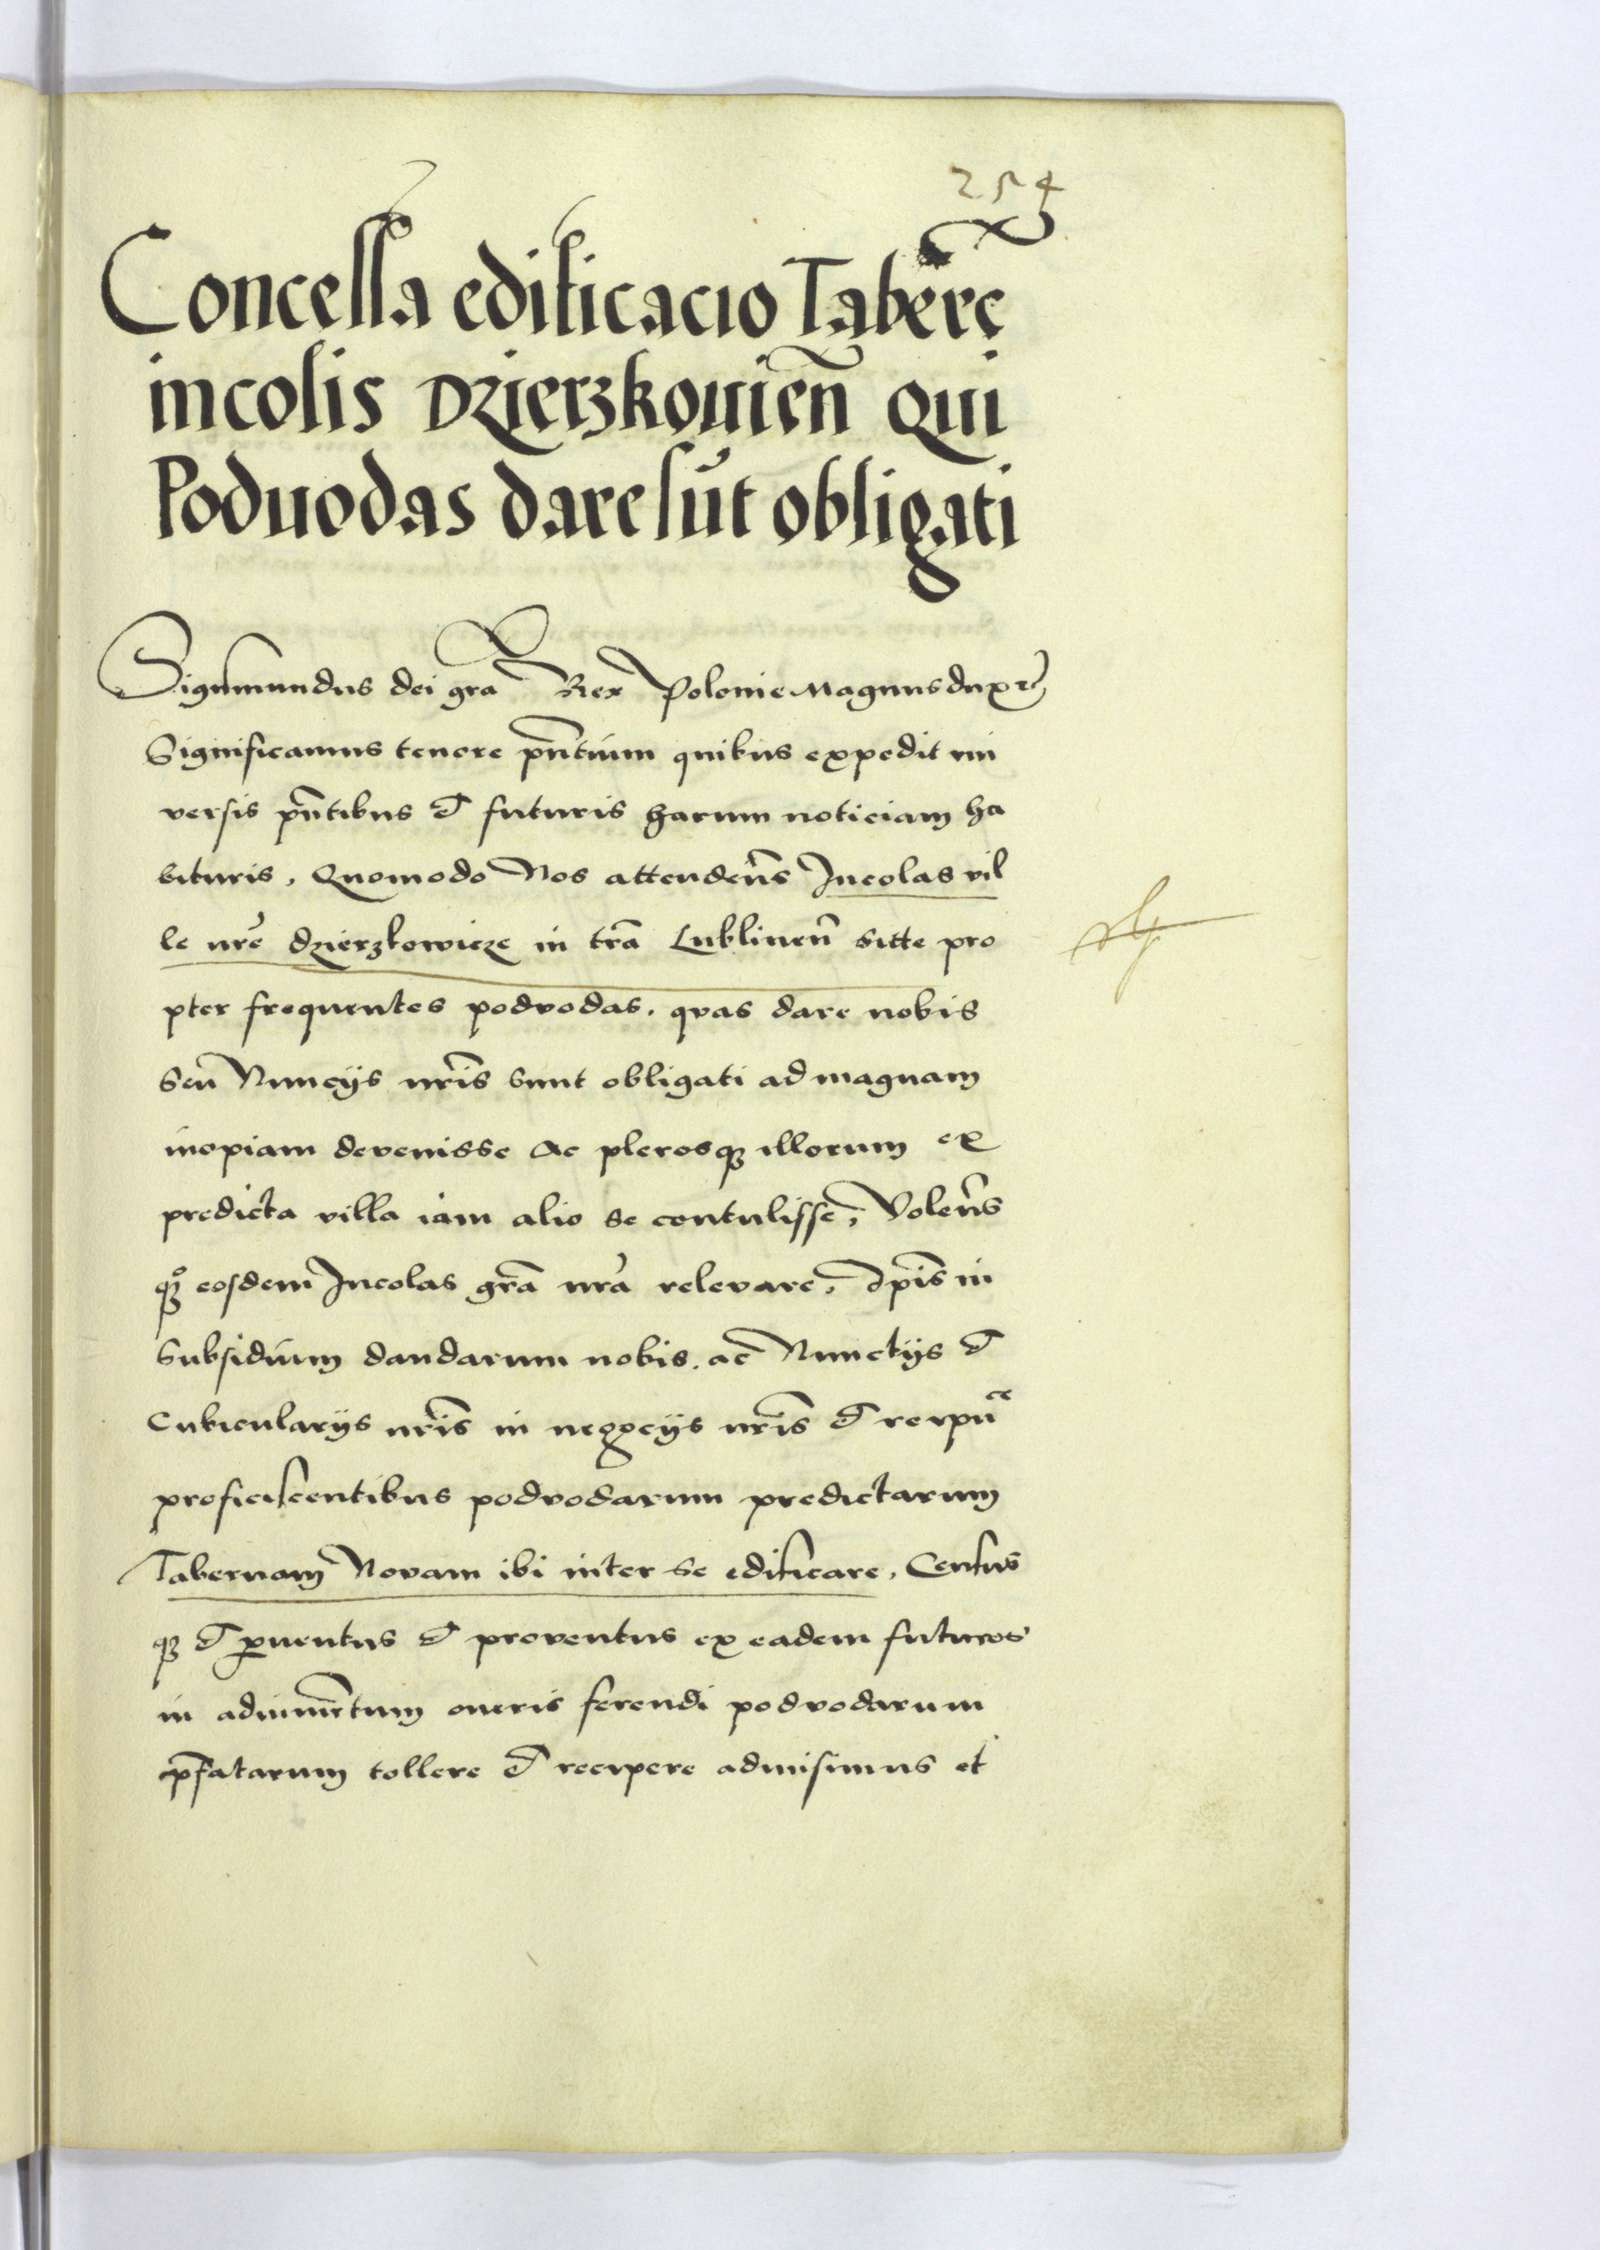 254
Concessa edificacio Taberẽ
incolis Dzierzkouieñ Qui
Poduodas dare sũt obligati
Sigismundus dei gra Rex Polonie Magnus dux
Significamus tenore pñtium quibus expedit uni
versis pñtibus et futuris harum noticiam ha
bituris. Quomodo Nos attendeñs Incolas vil
le nr̃e dzierzkowicze in tr̃a Lublineñ sitte pro
pter frequentes podvodas. qvas dare nobis
seu Nuncijs nr̃is sunt obligati ad magnam
inopiam devenisse Ac plerosqꝫ illorum ex
predicta villa iam alio se contulisse, Voleñs
qꝫ eosdem Incolas gr̃a nr̃a relevare, Ip̃is in
subsidium dandarum nobis. ac Nunctijs et
Cubicularijs nr̃is in negocijs nr̃is et reipũce
proficiscentibus podvodarum predictarum
Tabernam Novam ibi inter se edificare, Census
qꝫ et ꝓuentus et proventus ex eadem futuros
in adiumẽtum oneris ferendi podvodarum
p̃fatarum tollere et recipere admisimus et